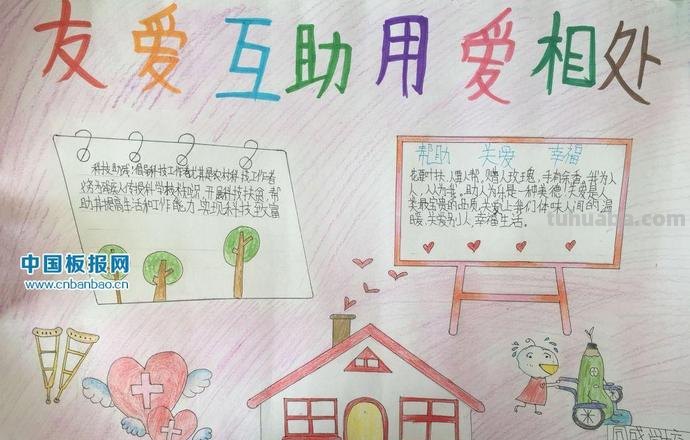 友爱互助用爱相处
科技助残：倡导科技工作者尤其是农村科技工作者
义务为残疾人传授科学技术知识，开展科技扶贫，帮
助并提高生活和工作能力，实现科技致富
帮助 关爱 幸福
花要叶扶，人要人帮，赠人玫瑰，手有余香，我为人
人，人人为我，助人为乐是一种美德！关爱是人
类最宝贵的品质，关爱让我们体味人间的温
暖，关爱别人，幸福生活。
tuhuaba.com
中国板报网
www.cnbanbao.cn